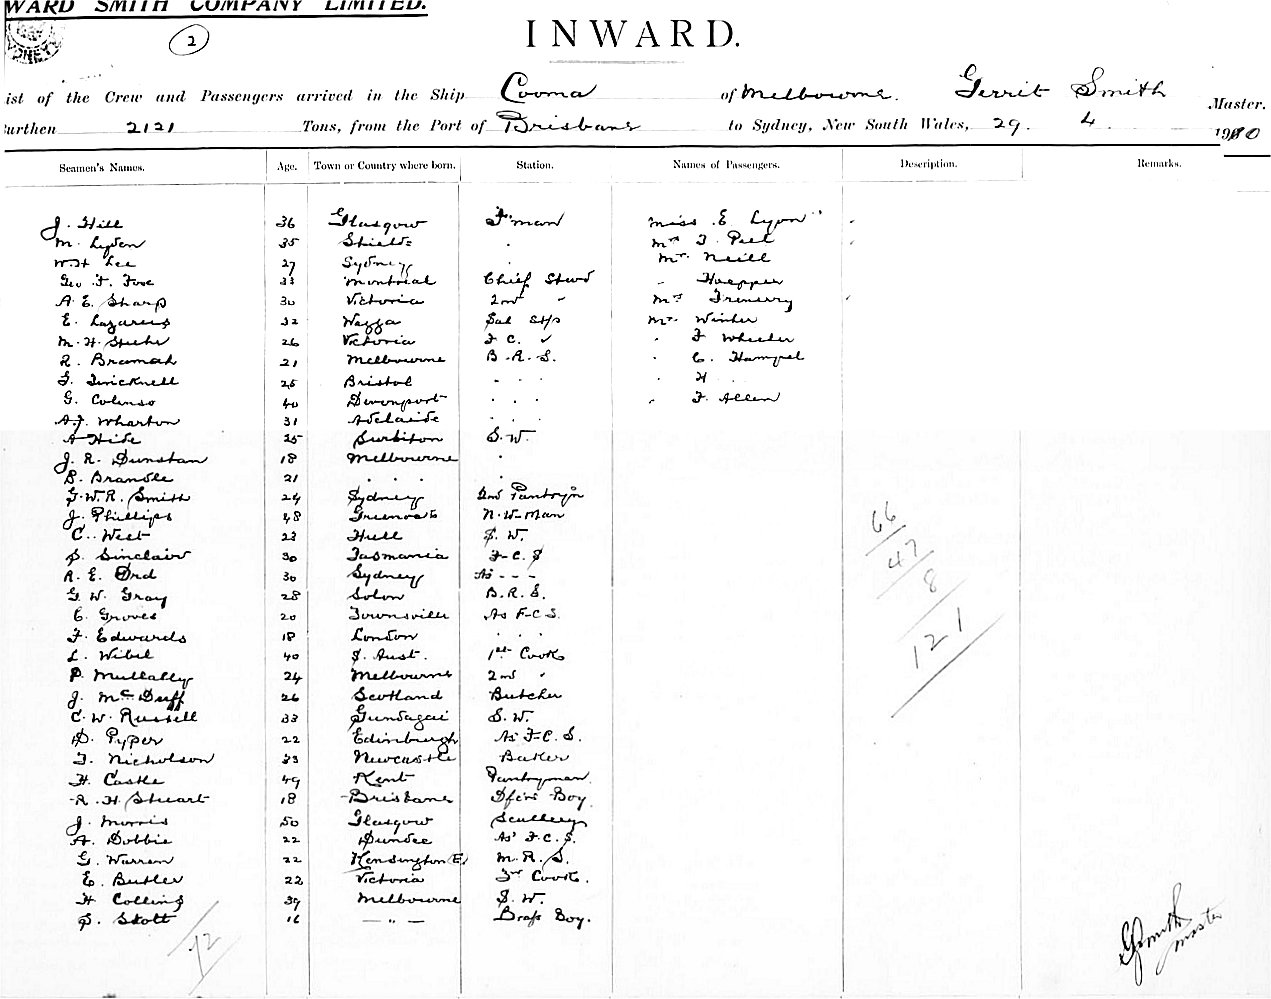 WARD SMITH COMPANY LIMITED.
2
INWARD.
ist of the Crew and Passengers arrived in the Ship Cooma of Melbourne. Gerrit Smith Master.
urthen 2121 Tons, from the Port of Brisbane to Sydney, New South Wales, 29 4 1910
Seamen's Names. Age. Town or Country where born. Station. Names of Passengers. Description. Remarks.
J. Hill 36 Glasgow F'man Miss E Lyon
M. Lyden 35 Shields " Mrs T. Peel
W. H Lee 27 Sydney Mr. Neill
Geo. F. Foxe 33 Montreal Chief Stwd " Hoepper
A. E. Sharp 30 Victoria 2nd " Mrs
E. Lazarus 32 Wagga Sal Mr. Winter
M. H. 26 Victoria F C. " F Wheeler
R. Bramah 21 Melbourne B. R. S. " C. Hampel
F. Twicknell 25 Bristol " " " " H " "
G. Colenso 40 Devonport " " " " F. Allen
A. J. Wharton 31 Adelaide " " "
A Hide 25 Surbiton S. W.
J. R. Dunstan 18 Melbourne "
B. Brandle 21 " " " "
G. W. R. Smith 24 Sydney 2nd Pantry'n
J. Phillips 48 Greenock N. W- Man
C. West 23 Hull S. W. 66
S. Sinclair 30 Tasmania F- C. S 47
R. E. Ord 30 Sydney As - - - 8
G. W. Gray 28 Solon B. R. S.
C. Groves 20 Townsville As F-C S.
F. Edwards 18 London " " " 121
L. Wibel 40 S. Aust. 1st Cook
P. Mullally 24 Melbourne 2nd "
J. McDuff 26 Scotland Butcher
C. W. Russell 33 Gundagai S. W.
D. Pyper 22 Edinburgh As F-C. S.
T. Nicholson 33 Newcastle Baker
H. Castle 49 Kent Pantryman
R. H. Stuart 18 Brisbane Boy
J. Morris 50 Glasgow Scullery
A. Dobbie 22 Dundee As' F. C. S.
G. Warren 22 Kensington (E) M. R. S.
E. Butler 22 Victoria 3rd Cook.
H Collins 39 Melbourne S. W.
S. Skott 16 — " — Brass Boy.
72
G Smith
Master